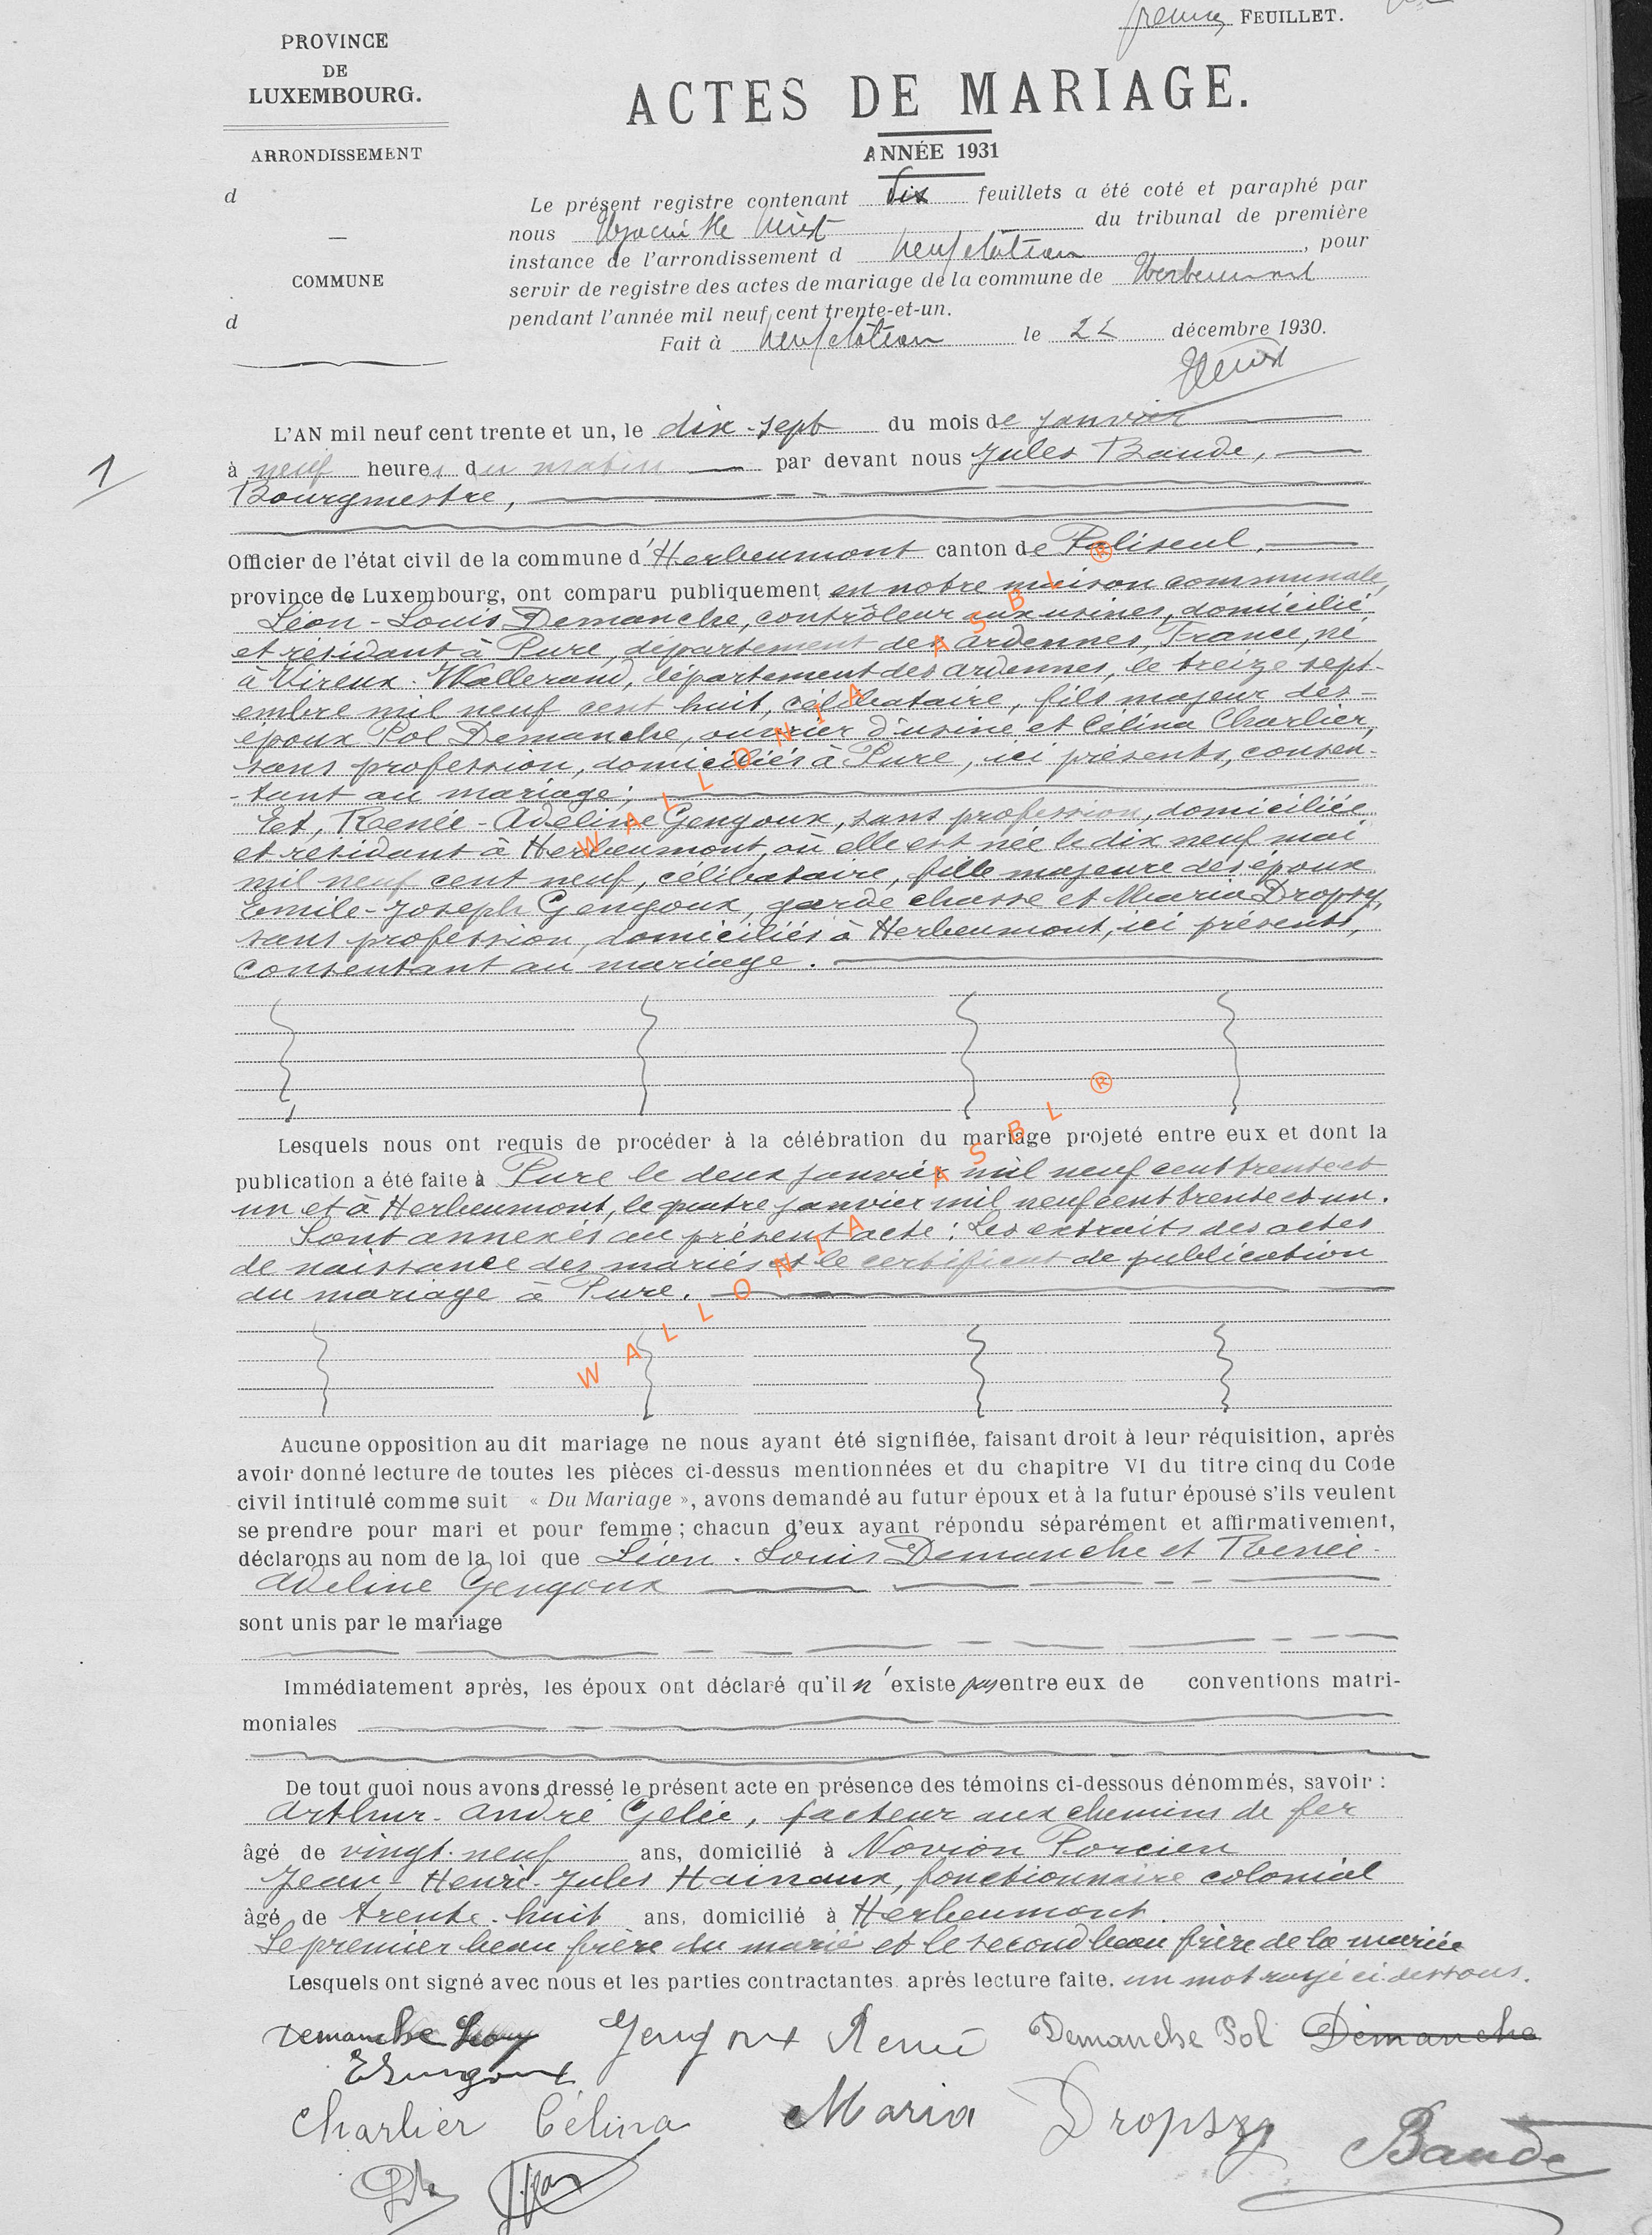 premier FEUILLET.
PROVINCE
DE
LUXEMBOURG.
ARRONDISSEMENT
d
COMMUNE
d
ACTES DE MARIAGE.
ANNÉE 1931
Le présent registre contenant dix feuillets a été coté et paraphé par
nous du tribunal de première
instance de l'arrondissement d Neufchâteau, pour
servir de registre des actes de mariage de la commune de Herbeumont
pendant l'année mil neuf cent trente-et-un.
Fait à Neufchâteau le 22 décembre 1930.
1
L'AN mil neuf cent trente et un, le dix-sept du mois de janvier
à neuf heures du matin par devant nous Jules Baude,
Bourgmestre,
Officier de l'état civil de la commune d'Herbeumont canton de Paliseul,
province de Luxembourg, ont comparu publiquement en notre maison communale,
Léon-Louis Demanche, contrôleur aux usines, domicilié
et résidant à Pure, département des Ardennes, France, né
à Vireux-Wallerand, département des Ardennes, le treize sept-
embre mil neuf cent huit, célibataire, fils majeur des
époux Pol Demanche, ouvrier d'usine et Célina Charlier,
sans profession, domiciliés à Pure, ici présents, consen-
-tant au mariage;
Et, Renée-Adeline Gengoux, sans profession, domiciliée
et résidant à Herbeumont, où elle est née le dix neuf mai
mil neuf cent neuf, célibataire, fille majeure des époux
Emile-Joseph Gengoux, garde chasse et Maria Dropsy,
sans profession, domiciliés à Herbeumont, ici présents,
consentant au mariage.
Lesquels nous ont requis de procéder à la célébration du mariage projeté entre eux et dont la
publication a été faite à Pure le deux janvier mil neuf cent trente et
un et à Herbeumont, le quatre janvier mil neuf cent trente et un.
Sont annexés au présent acte: Les extraits des actes
de naissance des mariés et le certificat de publication
du mariage à Pure.
WALLONIA ASBL ®
WALLONIA ASBL ®
Aucune opposition au dit mariage ne nous ayant été signifiée, faisant droit à leur réquisition, après
avoir donné lecture de toutes les pièces ci-dessus mentionnées et du chapitre VI du titre cinq du Code
civil intitulé comme suit « Du Mariage », avons demandé au futur époux et à la futur épouse s'ils veulent
se prendre pour mari et pour femme ; chacun d'eux ayant répondu séparément et affirmativement,
déclarons au nom de la loi que Léon-Louis Demanche et Renée-
Adeline Gengoux
sont unis par le mariage
Immédiatement après, les époux ont déclaré qu'il n'existe pas entre eux de conventions matri-
moniales
De tout quoi nous avons dressé le présent acte en présence des témoins ci-dessous dénommés, savoir :
Arthur-André Gelée, facteur aux chemins de fer
âgé de vingt-neuf ans, domicilié à Novion Porcien
Jean-Henri-Jules Hainaux, fonctionnaire colonial
âgé de trente-huit ans, domicilié à Herbeumont.
Le premier beau frère du marié et le second beau frère de la mariée
Lesquels ont signé avec nous et les parties contractantes après lecture faite. un mot rayé ci-dessous.
Demanche Léon Gengoux Renée Demanche Pol Demanche
EGengoux
Charlier Célina Maria Dropsy Baude